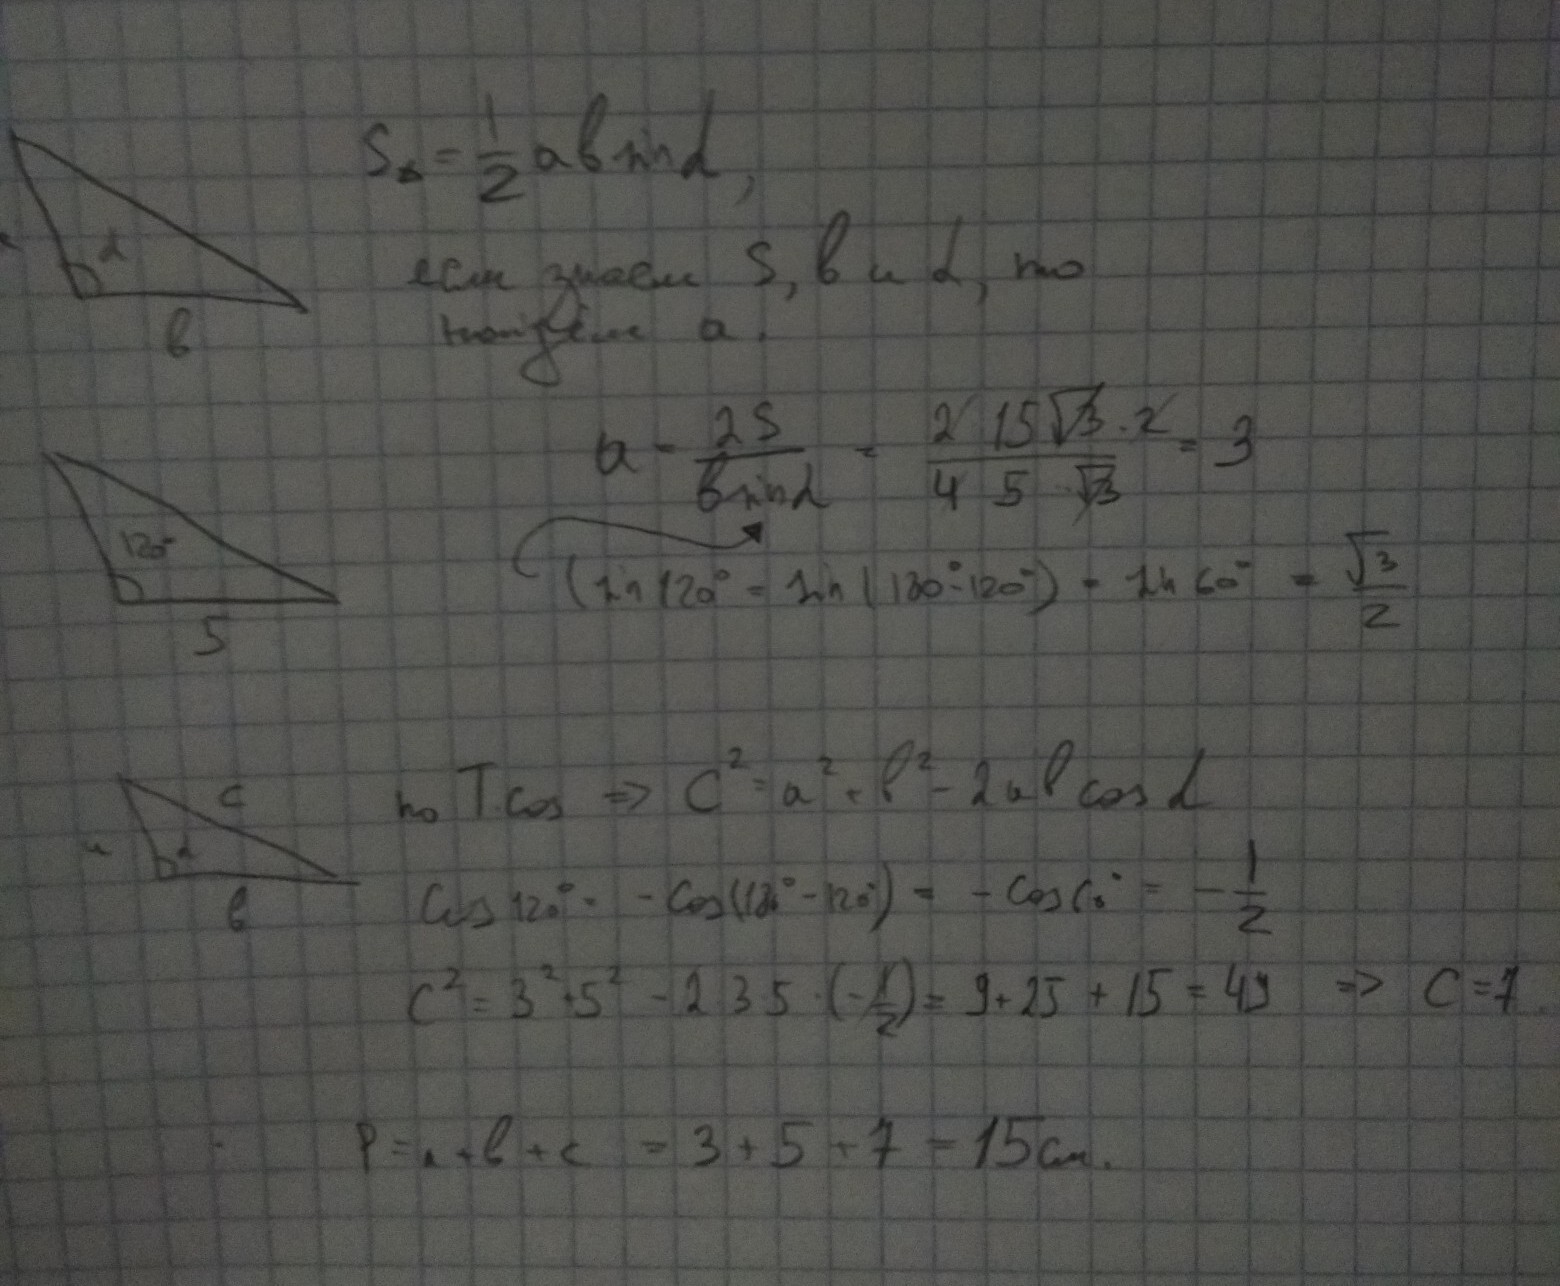 S△ = 1/2 a b sin α,
α
если знаем S, b и α, то
b
найдём a.
a = 2S / b sin α = 2 15√3 · 2 / 4 5 √3 = 3
120°
(sin 120° = sin(180°-120°) = sin 60° = √3/2
5
по T.cos => C² = a² + b² - 2ab cos α
c
a α
b
Cos 120° = -Cos(180°-120°) = -Cos 60° = -1/2
C² = 3²+5² - 2 3 5 · (-1/2) = 9+25+15 = 49 => C=7
P = a+b+c = 3+5+7 = 15 см.